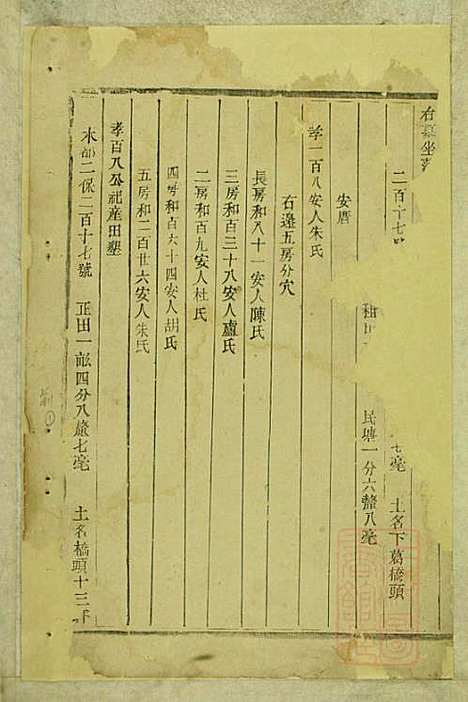 右墓坐
二百十七 七毫 土名下葛橋頭
民塘一分六釐八毫
安厝
孝一百八安人朱氏
右邊五房分穴
長房和八十一安人陳氏
三房和百三十八安人盧氏
二房和百九安人杜氏
四房和百六十四安人胡氏
五房和二百廿六安人朱氏
孝百八公祀産田墾
本都二保二百十七號 正田一畝四分八釐七毫 土名橋頭十三